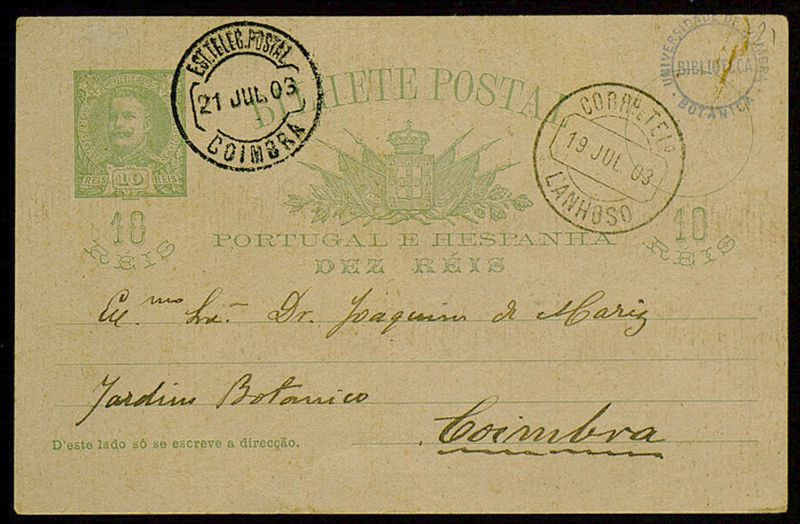 BILHETE POSTAL
EST. TELEG. POSTAL
21 JUL. 03
COIMBRA
CORRº E TELº
19 JUL. 03
LANHOSO
UNIVERSIDADE DE COIMBRA
BIBLIOTECA
BOTANICA
CORREIOS
REIS 10 REIS
10
RÉIS
10
RÉIS
PORTUGAL E HESPANHA
DEZ RÉIS
Ex.mo Snr. Dr. Joaquim de Mariz
Jardim Botanico
Coimbra
D'este lado só se escreve a direcção.